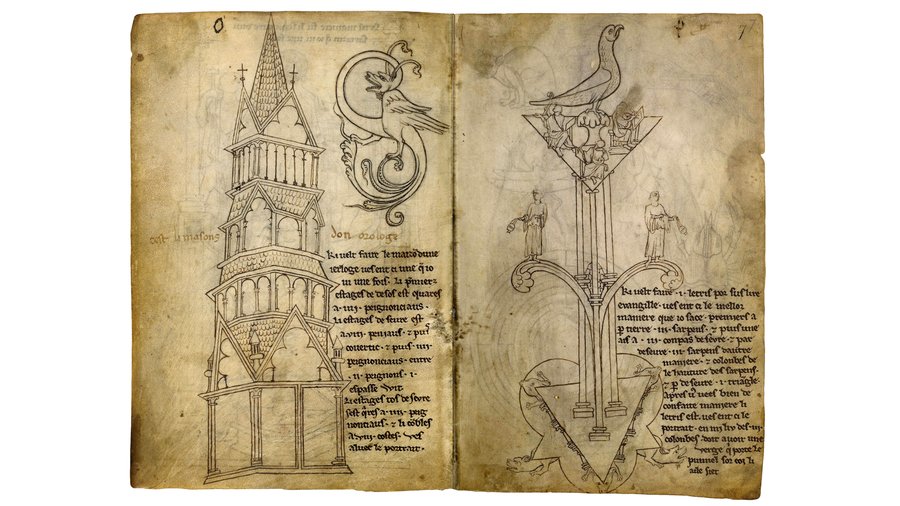 7
cest li masons don orologe
Ki velt faire le maizo dune
ierloge ves ent ci une q̃ io
vi une fois. li p̃mierz
estages de desos est quares
a .iiii. peignonciaus.
li estages de seure est
a .viii. peniaus . & puis
covertic . & puis .iiii.
peignonciaus . entre
.ii. peignons . i .
espasse wit
li estages tos de seure
sest q̃res a .iiii. peig
nonciaus . & li cobles
a .viii. costes . ves
aluec le portrait .
Ki velt faire . i . letris por sus lire
evangille . ves ent ci le mellor
maniere que io face . premiers a
p tierre .iii. sarpens . & puis une
ais a .iii. conpas deseure . & par
deseure .iii. sarpens dautre
maniere . & colonbes de
le hauture des sarpens .
& p deseure . i . triangle .
apres v vees bien de
confaite maniere li
letris est . ves ent ci le
portrait . en mi liu des .iii.
colonbes . doit avoir une
verge q̃ porte le
pumiel sor coi li
aile siet